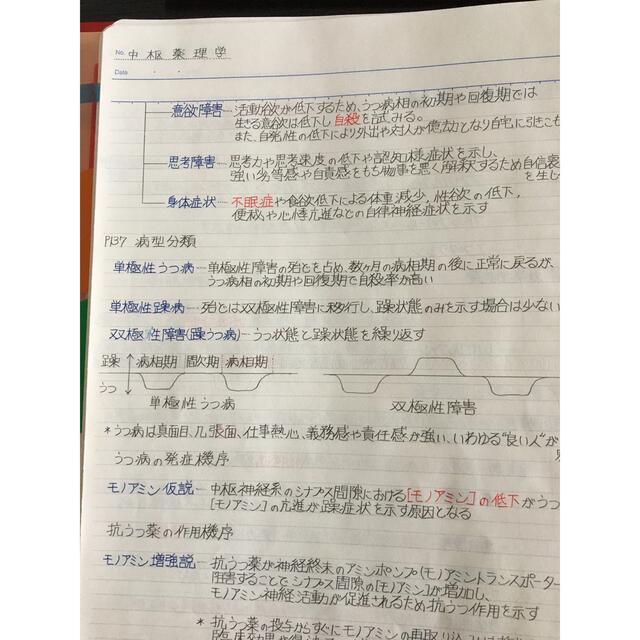 No. 中枢薬理学
Date
意欲障害 ― 活動欲が低下するため、うつ病相の初期や回復期では
生きる意欲は低下し自殺を試みる。
また、自発性の低下により外出や対人が億劫となり自宅に引きこも
思考障害 ― 思考力や思考速度の低下や認知様症状を示し、
強い劣等感や自責感をもち物事を悪く解釈するため自信喪
を生じ
身体症状 ― 不眠症や食欲低下による体重減少、性欲の低下、
便秘や心悸亢進などの自律神経症状を示す
P137 病型分類
単極性うつ病 ― 単極性障害の殆どを占め、数ヶ月の病相期の後に正常に戻るが、
うつ病相の初期や回復期で自殺率が高い
単極性躁病 ― 殆どは双極性障害に移行し、躁状態のみを示す場合は少ない
双極性障害(躁うつ病) ― うつ状態と躁状態を繰り返す
躁 病相期 間欠期 病相期
うつ
単極性うつ病 双極性障害
*うつ病は真面目、几張面、仕事熱心、義務感や責任感が強い、いわゆる"良い人"が
うつ病の発症機序
モノアミン仮説 ― 中枢神経系のシナプス間隙における[モノアミン]の低下がうつ
[モノアミン]の亢進が躁症状を示す原因となる
抗うつ薬の作用機序
モノアミン増強説 ― 抗うつ薬が神経終末のアミンポンプ(モノアミントランスポーター
阻害することでシナプス間隙の[モノアミン]が増加し、
モノアミン神経活動が促進されるため抗うつ作用を示す
*抗うつ薬の投与からすぐにモノアミンの再取り込み